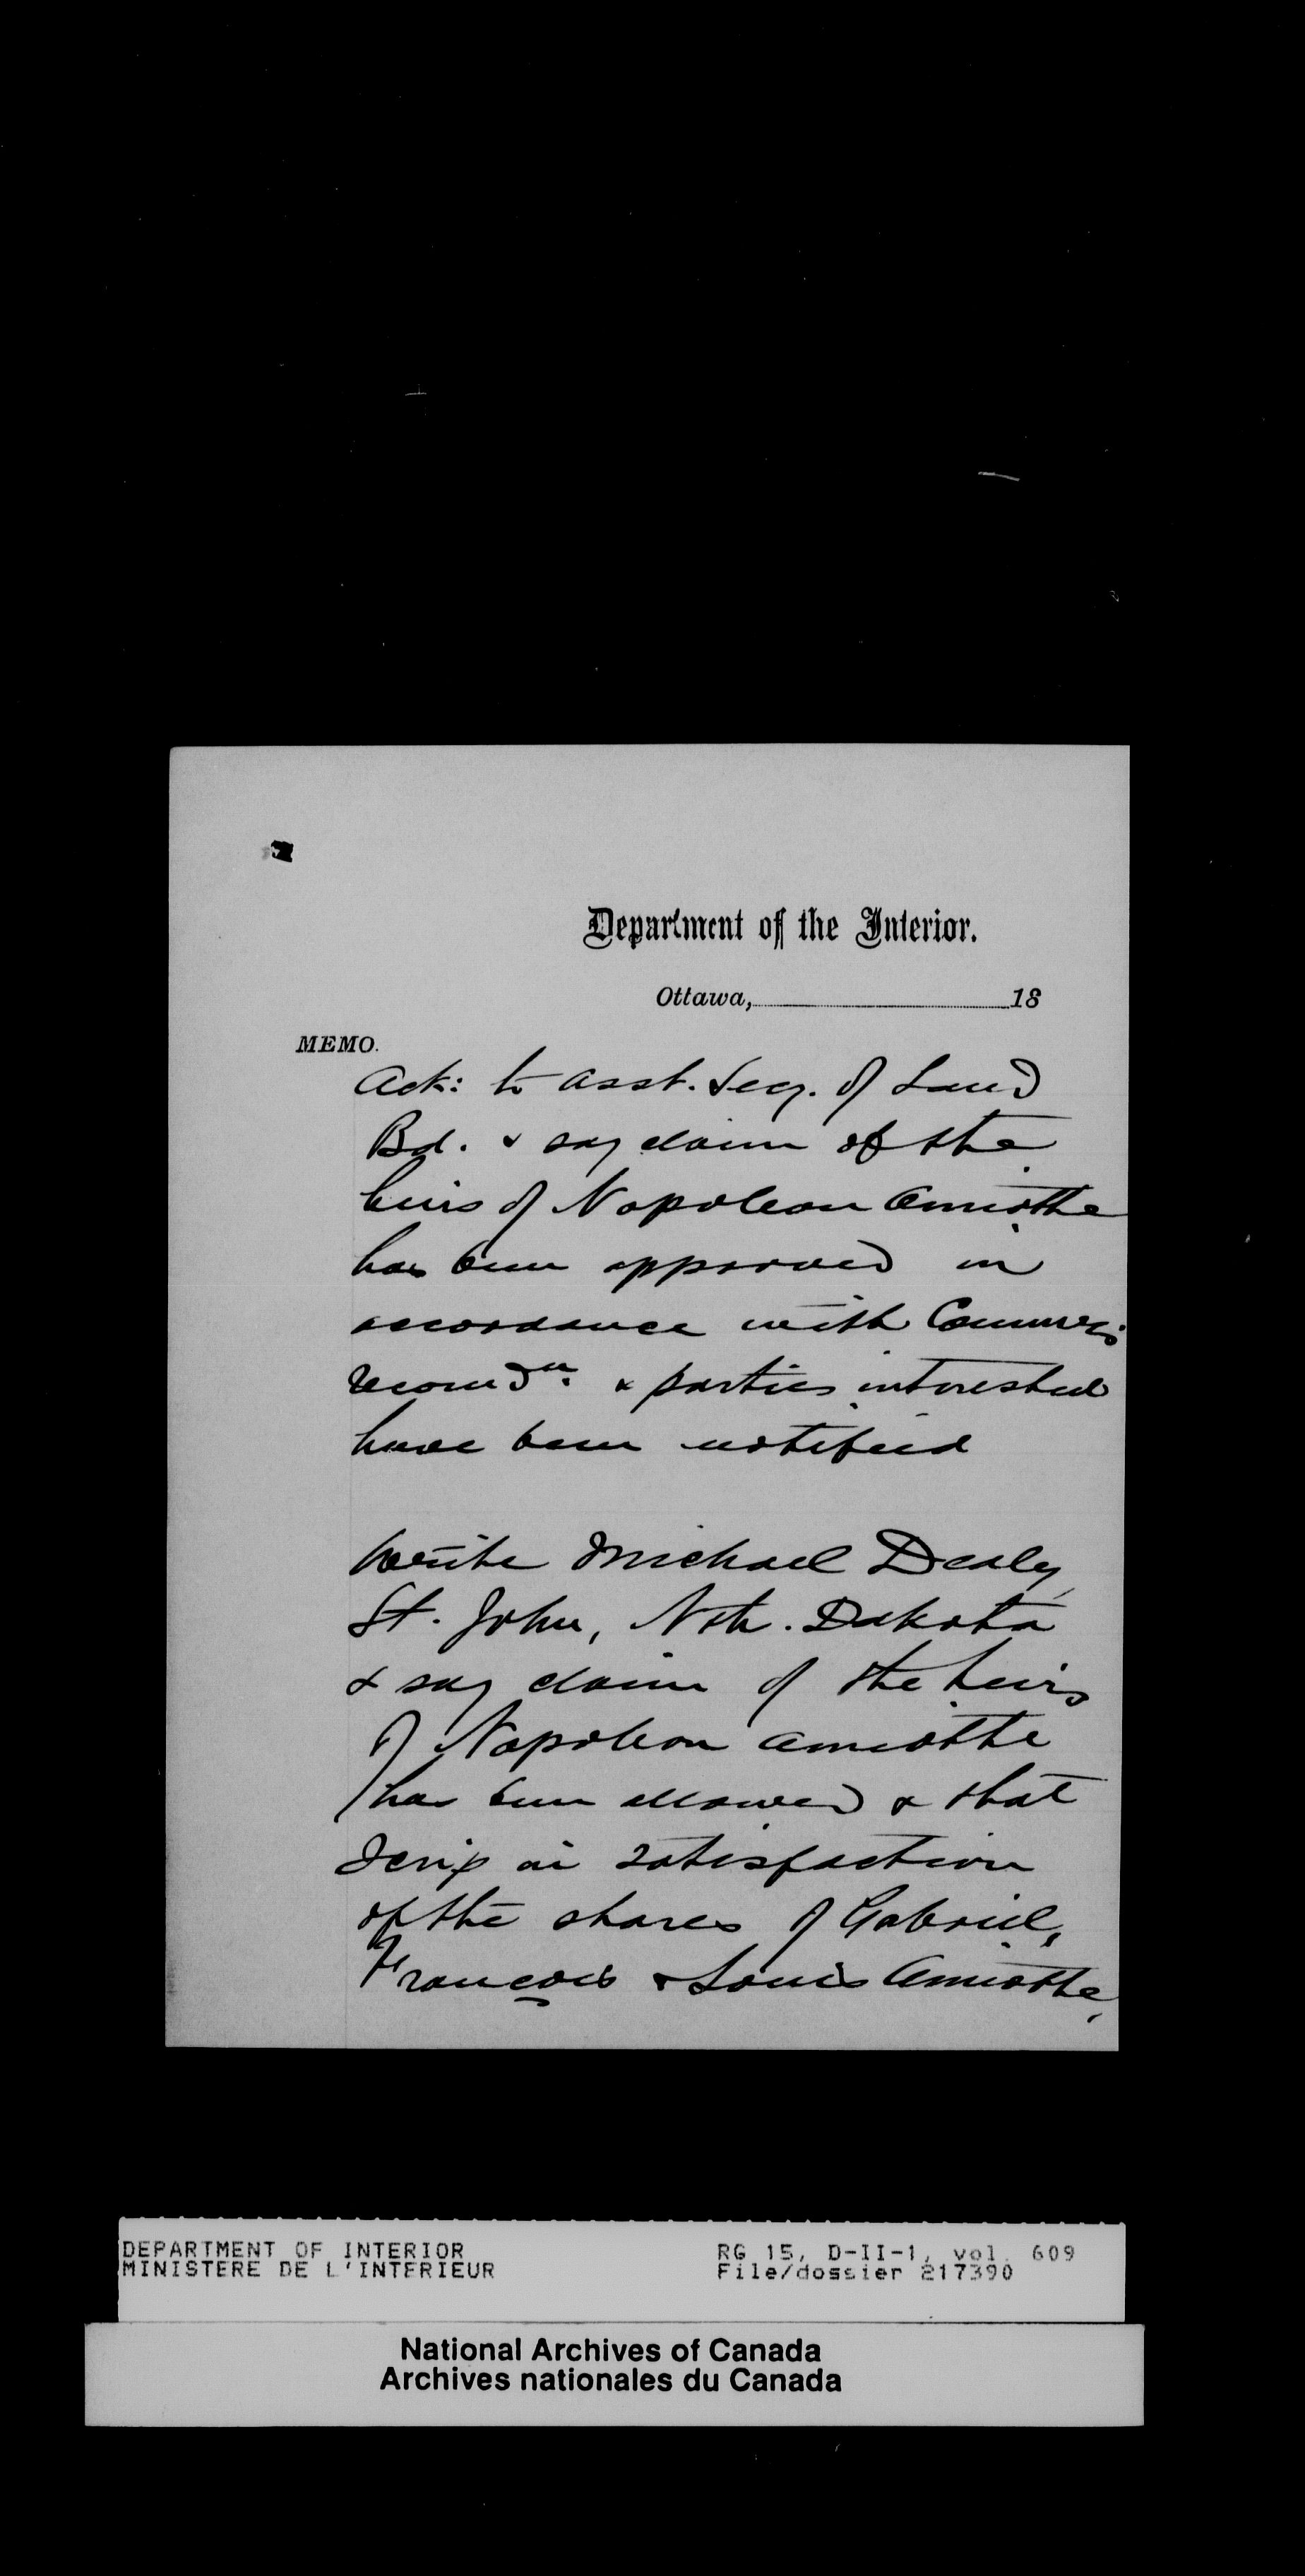 Department of the Interior.
Ottawa, 18
MEMO.
Ack: to Asst. Secy. of Land
Bd. & say claim of the
heirs of Napoleon Amiotte
has been approved in
accordance with Commrs
recomdn. & parties interested
have been notified
Write Michael Dealy
St. John, Nth. Dakota
& say claim of the heirs
of Napoleon Amiotte
has been allowed & that
Scrip in satisfaction
of the shares of Gabriel,
François & Louis Amiotte,
DEPARTMENT OF INTERIOR
MINISTERE DE L'INTERIEUR
RG 15, D-II-1, vol. 609
File/dossier 217390
National Archives of Canada
Archives nationales du Canada